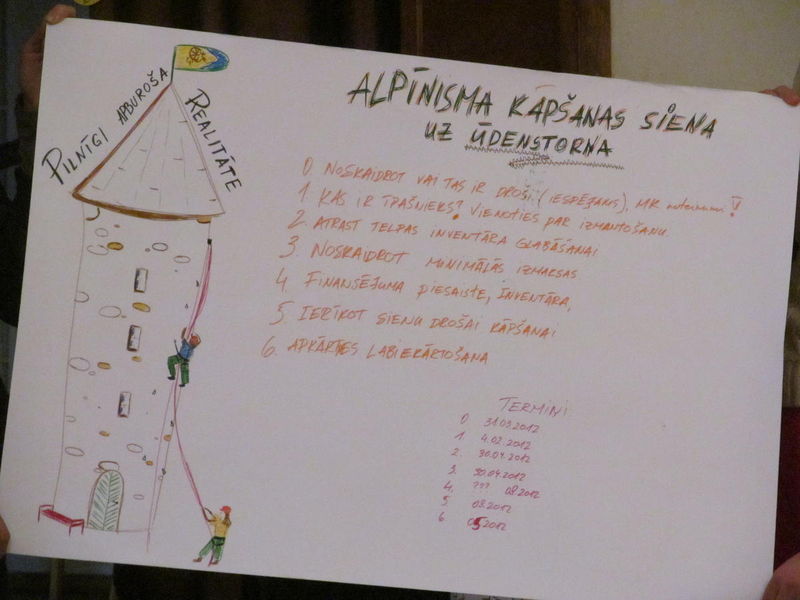 PILNĪGI APBUROŠA REALITĀTE
ALPĪNISMA KĀPŠANAS SIENA
UZ ŪDENSTORŅA
0 NOSKAIDROT VAI TAS IR DROŠI (IESPĒJAMS), MK noteikumi!
1 KAS IR ĪPAŠNIEKS? VIENOTIES PAR IZMANTOŠANU
2. ATRAST TELPAS INVENTĀRA GLABĀŠANAI
3. NOSKAIDROT MINIMĀLĀS IZMAKSAS
4. FINANSĒJUMA PIESAISTE, INVENTĀRA,
5. IERĪKOT SIENU DROŠAI KĀPŠANAI
6. APKĀRTNES LABIEKĀRTOŠANA
TERMIŅI
0 31.03.2012
1 4.02.2012
2. 30.04.2012
3. 30.04.2012
4. ??? 08.2012
5. 08.2012
6 05 2012